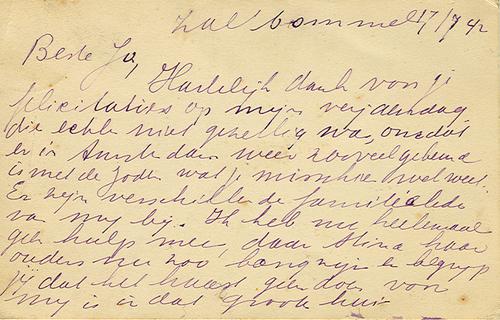 Zal bommel 17/7 42
Beste Jo,
Hartelijk dank voor je
felicitaties op mijn verjaardag
die echter niet gezellig was, omdat
er in Amsterdam weer zooveel gebeurd
is met de Joden wat je misschien wel weet.
Er zijn verschillende familieleden
van mij bij. Ik heb nu heelemaal
geen hulp meer, daar Stina haar
ouders nu zoo bang zijn en begrijp
jij dat het haast geen doen voor
mij is in dat groote huis